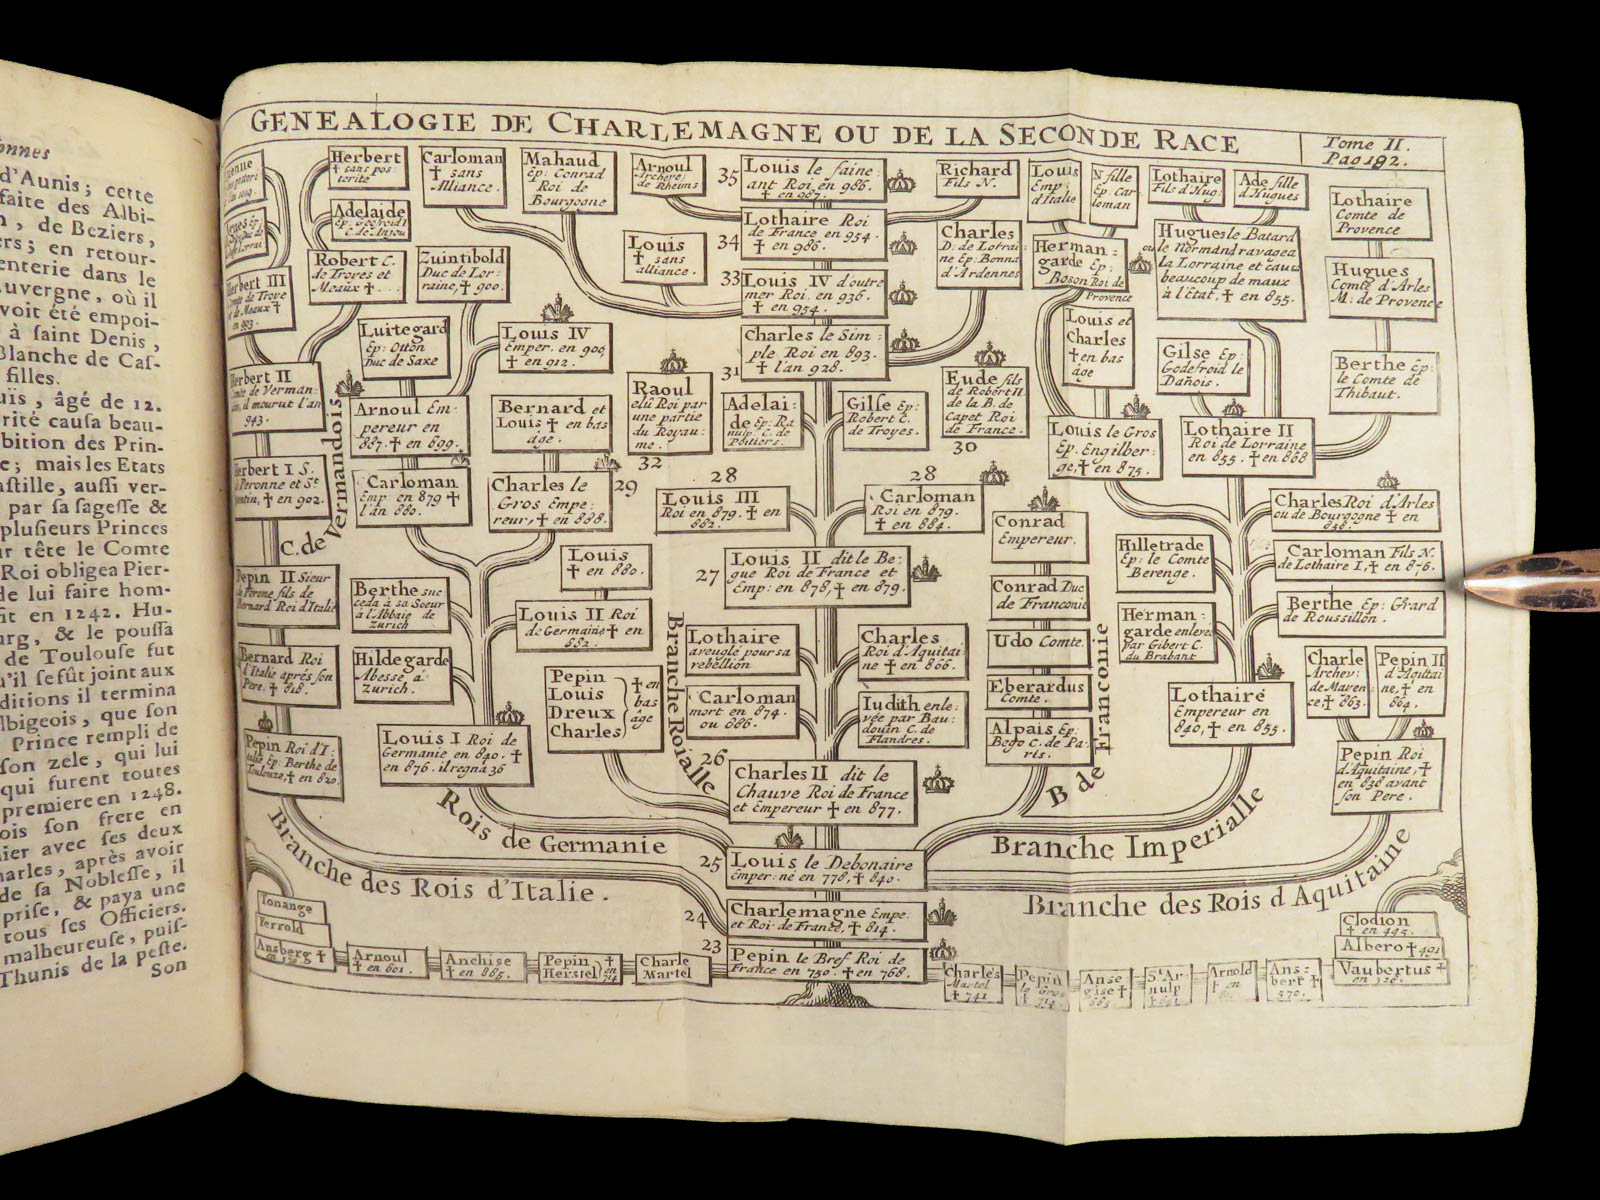 onnes
d'Aunis; cette
faite des Albi-
n, de Beziers,
ers; en retour-
enterie dans le
uvergne, où il
voit été empoi-
à saint Denis,
Blanche de Caf-
filles.
uis, âgé de 12.
orité causa beau-
bition des Prin-
e; mais les Etats
astille, aussi ver-
par sa sagesse &
plusieurs Princes
ur tête le Comte
Roi obligea Pier-
de lui faire hom-
fit en 1242. Hu-
urg, & le poussa
de Toulouse fut
u'il se fût joint aux
ditions il termina
lbigeois, que son
Prince rempli de
son zele, qui lui
qui furent toutes
premiere en 1248.
ois son frere en
nier avec ses deux
harles, après avoir
de sa Noblesse, il
prise, & paya une
tous ses Officiers.
malheureuse, puis-
Thunis de la peste.
Son
GENEALOGIE DE CHARLEMAGNE OU DE LA SECONDE RACE
Tome II.
Pag 192.
Herbert
✝ sans pos
terité
Carloman
✝ sans
Alliance.
Mahaud
Ep: Conrad
Roi de
Bourgogne
Arnoul
Archeve:
de Rheims
35
Louis le faine:
ant Roi en 986.
✝ en 987.
Richard
Fils N.
Louis
Emp:
d'Italie
N fille
Ep Car-
loman
Lothaire
Fils d'Hug:
Ade fille
d'Hugues
Lothaire
Comte de
Provence
Adelaide
Ep: Geofroid I
C. de Anjou
Robert C.
de Troyes et
Meaux ✝
Zuintibold
Duc de Lor:
raine, ✝ 900.
Louis
✝ sans
alliance.
34
Lothaire Roi
de France en 954
✝ en 986.
Charles
D: de Lorrai
ne Ep: Bonna
d'Ardennes
Herman:
garde Ep:
Boson Roi de
Provence
Hugues le Batard
ou le Normand ravagea
la Lorraine et causa
beaucoup de maux
à l'Etat, ✝ en 855.
Hugues
Comte d'Arles
M: de Provence
Herbert III
Comte de Troye
et de Meaux ✝
en 993.
33
Louis IV d'outre
mer Roi en 936.
✝ en 954.
Luitegard
Ep: Otton
Duc de Saxe
Louis IV
Emper. en 900
✝ en 912.
Charles le Sim-
ple Roi en 893.
✝ l'an 928.
31
Louis et
Charles
✝ en bas
âge
Gilse Ep:
Godefroid le
Danois.
Berthe Ep:
le Comte de
Thibaut.
Herbert II
Comte de Verman:
dois, il mourut l'an
943.
Arnoul Em-
pereur en
887. ✝ en 899.
Bernard et
Louis ✝ en bas
âge.
Raoul
elû Roi par
une partie
du Royau:
me.
32
Adelai:
de Ep: Ra
nulp C. de
Poitiers.
Gilse Ep:
Robert C.
de Troyes.
Eude fils
de Robert II
de la B. de
Capet Roi
de France.
30
Louis le Gros
Ep. Engilber-
ge, ✝ en 875.
Lothaire II
Roi de Lorraine
en 855. ✝ en 868
Herbert I S.
de Peronne et St
Quentin, ✝ en 902.
C. de Vermandois
Carloman
Emp en 879 ✝
l'an 880.
Charles le
Gros Empe:
reur, ✝ en 888.
29
28
Louis III
Roi en 879. ✝ en
882.
28
Carloman
Roi en 879.
✝ en 884.
Conrad
Empereur.
Charles Roi d'Arles
ou de Bourgogne ✝ en
858.
Pepin II Sieur
de Perone fils de
Bernard Roi d'Italie
Berthe suc
ceda à sa Soeur
à l'Abbaie de
zurich
Louis
✝ en 880.
Louis II Roi
de Germaine ✝ en
882.
27
Louis II dit le Be:
gue Roi de France et
Emp: en 878, ✝ en 879.
Conrad Duc
de Franconie
Hilletrade
Ep: le Comte
Berenge.
Carloman Fils N.
de Lothaire I, ✝ en 876.
Berthe Ep: Girard
de Roussillon.
Bernard Roi
d'Italie après son
Pere. ✝ 818.
Hildegarde
Abesse à
zurich.
Pepin
Louis
Dreux
Charles
✝ en
bas
âge
Branche Roialle
Lothaire
aveuglé pour sa
rebellion
Charles
Roi d'Aquitai
ne ✝ en 866.
Udo Comte.
Herman:
garde enlevée
par Gibert C.
du Brabant
Carloman
mort en 874.
ou 886.
Judith enle-
vée par Bau:
douin C. de
Flandres.
Eberardus
Comte.
Alpais Ep:
Bego C. de Pa-
ris.
B de Franconie
Lothaire
Empereur en
840, ✝ en 855.
Charle
Archev:
de Mayen:
ce ✝ 863.
Pepin II
d'Aquitai
ne, ✝ en
864.
Pepin Roi d'I:
talie Ep: Berthe de
Toulouze, ✝ en 820.
Louis I Roi de
Germanie en 840. ✝
en 876. il regna 36
26
Charles II dit le
Chauve Roi de France
et Empereur ✝ en 877.
Pepin Roi
d'Aquitaine, ✝
en 838 avant
son Pere.
Rois de Germanie
Branche Imperialle
Branche des Rois d'Italie.
25
Louis le Debonaire
Emper: né en 778, ✝ 840.
Branche des Rois d Aquitaine
24
Charlemagne Empe.
et Roi de France, ✝ 814.
23
Pepin le Bref Roi de
France en 750. ✝ en 768.
Tonange
Ferrold
Ansberg ✝
Arnoul
✝ en 601.
Anchise
✝ en 685.
Pepin
Heristel
✝
en
714
Charle
Martel
Charles
Martel
✝ 741
Pepin
le Gros
714
Anse
gise ✝
685
St Ar
nulp
Arnold
✝ en
Ans:
bert ✝
570.
Clodion
✝ en 445.
Albero ✝ 491
Vaubertus ✝
en 520.